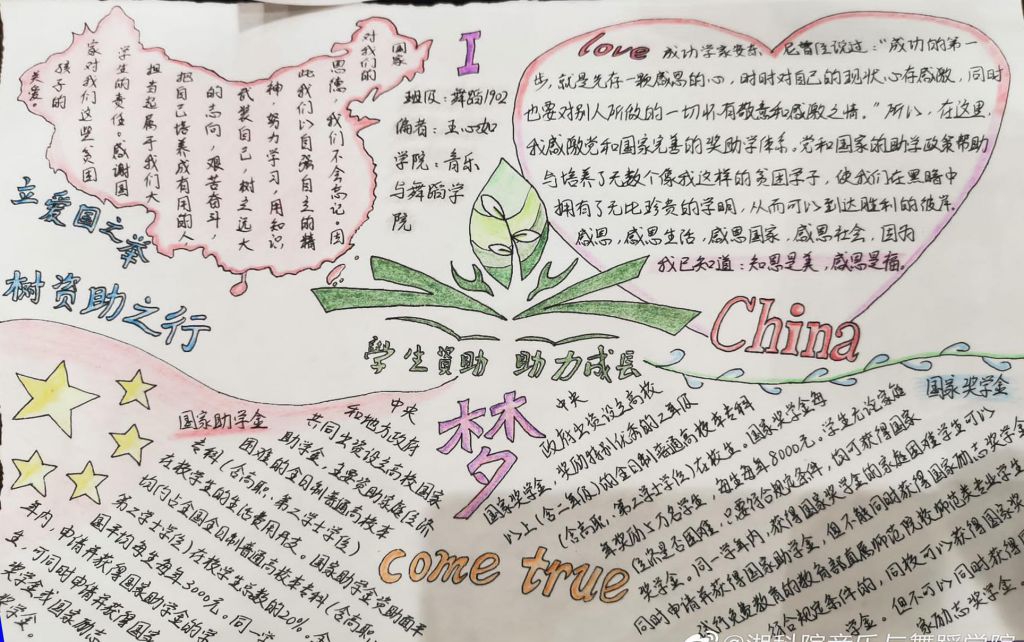 国家
对我们的
恩德，我们不会忘记。因
此我们以自强自主的精
神，努力学习，用知识
武装自己，树立远大
的志向，艰苦奋斗，
把自己培养成有用的人
担当起属于我们大
学生的责任。感谢国
家对我们这些贫困
孩子的
关爱。
I
班级：舞蹈1902
编者：王心如
学院：音乐
与舞蹈学
院
love 成功学家安东
尼曾经说过："成功的第一
步，就是先存一颗感恩的心，时时对自己的现状心存感激，同时
也要对别人所做的一切怀有敬意和感激之情。"所以，在这里，
我感激党和国家完善的奖助学体系。党和国家的助学政策帮助
与培养了无数个像我这样的贫困学子，使我们在黑暗中
拥有了无比珍贵的学明，从而可以到达胜利的彼岸。
感恩，感恩生活，感恩国家，感恩社会，因为
我已知道：知恩是美，感恩是福。
China
立爱国之举
树资助之行
学生資助 助力成长
梦
come true
国家助学金
中央
和地方政府
共同出资设立高校国家
助学金，主要资助家庭经济
困难的全日制普通高校本
专科（含高职、第二学士学位）
在校学生的生活费用开支。国家助学金资助面平
均约占全国全日制普通高校本专科（含高职、
第二学士学位）在校学生总数的20%。全
国平均每生每年3000元。同一学
年内，申请并获得国家助学金的学
生，可同时申请并获得国家
奖学金或国家励志
奖学金。
国家奖学金
中央
政府出资设立高校
奖励特别优秀的二年级
国家奖学金，
以上（含二年级）的全日制普通高校本专科
（含高职、第二学士学位）在校生。国家奖学金每
年奖励5万名学生，每生每年8000元。学生无论家庭
经济是否困难，只要符合规定条件，均可获得国家
奖学金。同一学年内，获得国家奖学金的家庭困难学生可以
同时申请并获得国家助学金，但不能同时获得国家励志奖学金
试行免费教育的教育部直属师范院校师范类专业学生
符合规定条件的，同校可以获得国家奖
学金。但不可以同时获得国
家励志奖学金。
@湖科院音乐与舞蹈学院